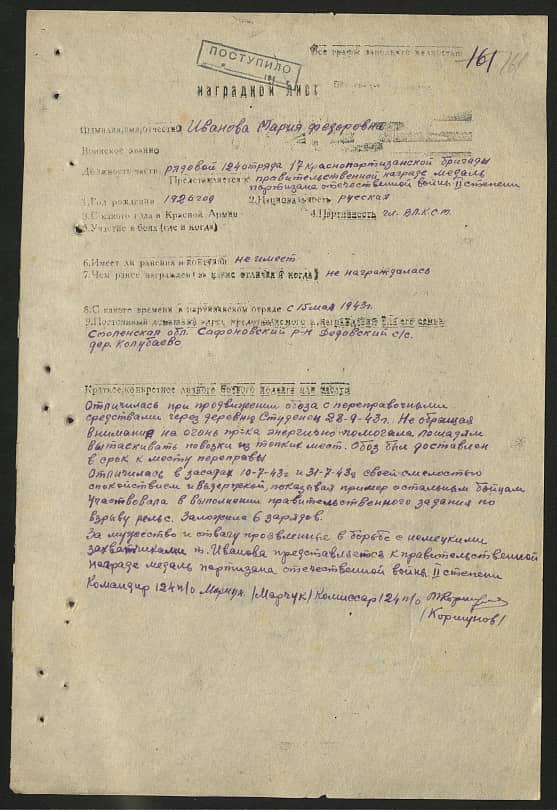 Все графы заполнять полностью
161 161
ПОСТУПИЛО
НАГРАДНОЙ ЛИСТ
Фамилия, имя, отчество Иванова Мария Федоровна
Воинское звание
Должность часть рядовой 124 отряда 17 Краснопартизанской бригады
Представляется к правительственной награде медаль
партизана отечественной войны II степени
1. Год рождения 1926 год 2. Национальность русская
3. С какого года в Красной Армии 4. Партийность чл. ВЛКСМ.
5. Участие в боях (где и когда)
6. Имеет ли ранения и контузии не имеет
7. Чем ранее награжден (за какие отличия и когда) не награждалась
8. С какого времени в партизанском отряде с 15 мая 1943 г.
9. Постоянный домашний адрес представляемого к награждению или его семьи
Смоленская обл. Сафоновский р-н Дедовский с/с.
дер. Колубаево
Краткое, конкретное личного боевого подвига или заслуг
Отличилась при продвижении обоза с переправочными
средствами через деревню Студенец 28-9-43 г. Не обращая
внимание на огонь пр-ка энергично помогала лошадям
вытаскивать повозки из топких мест. Обоз был доставлен
в срок к месту переправы
Отличилась в засадах 10-7-43 г и 31-7-43 г своей смелостью
спокойствием и выдержкой, показывая пример остальным бойцам
Участвовала в выполнении правительственного задания по
взрыву рельс. Заложила 6 зарядов.
За мужество и отвагу проявленные в борьбе с немецкими
захватчиками т. Иванова представляется к правительственной
награде медаль партизана отечественной войны II степени
Командир 124 п/о Марчук /Марчук/ Комиссар 124 п/о
/Коршунов/